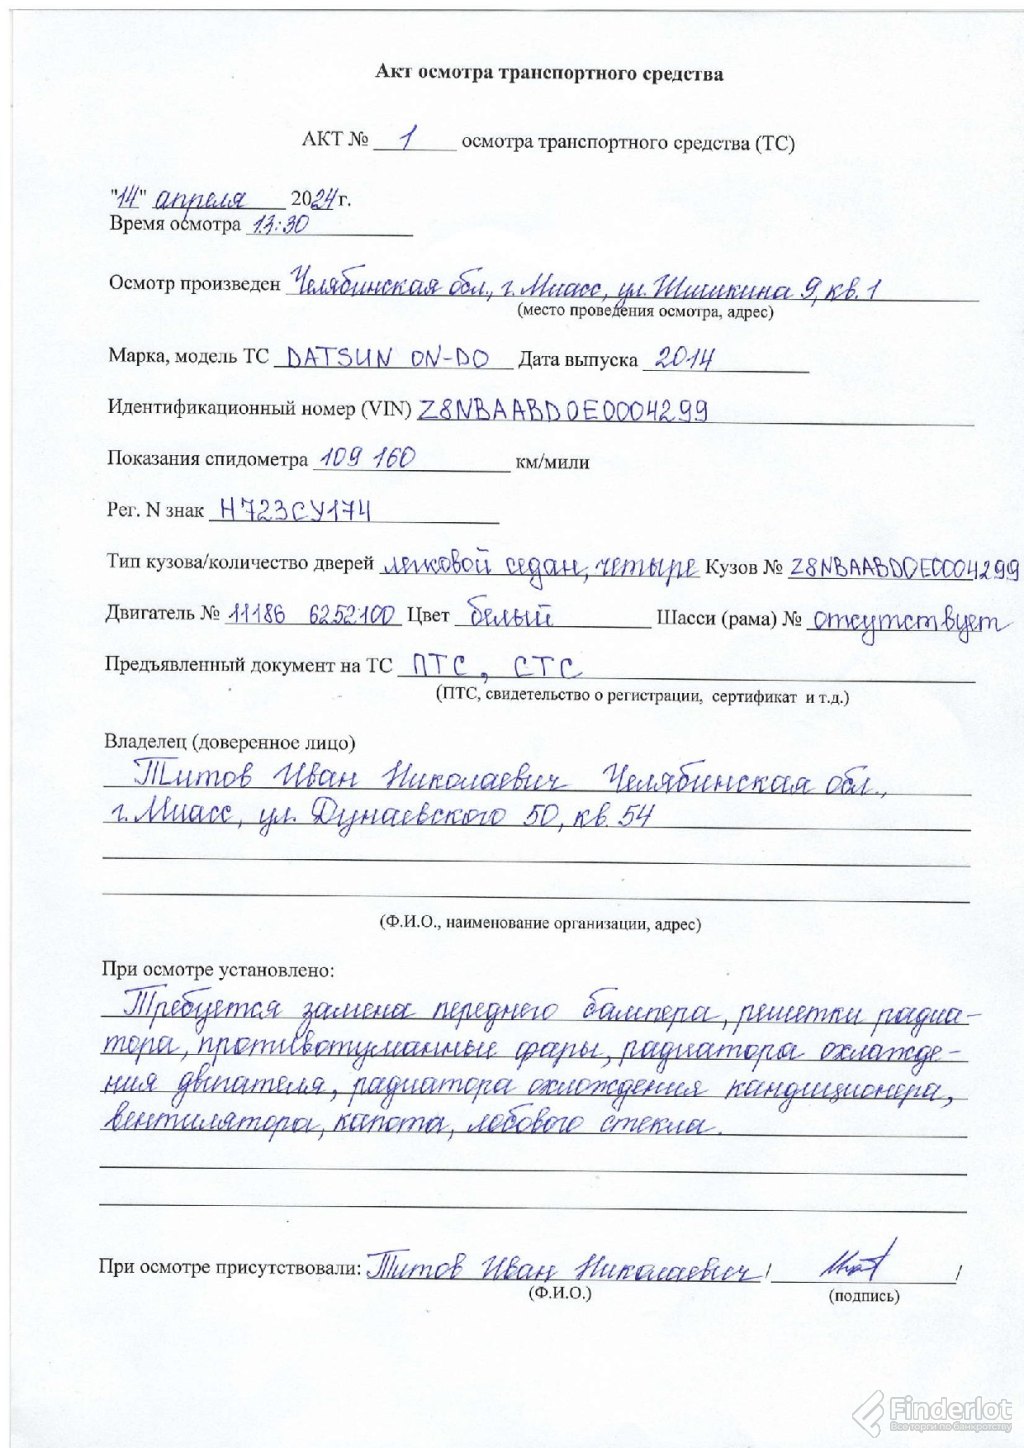 Акт осмотра транспортного средства
АКТ № 1 осмотра транспортного средства (ТС)
"14" апреля 2024 г.
Время осмотра 13:30
Осмотр произведен Челябинская обл., г. Миасс, ул. Шишкина 9, кв. 1
(место проведения осмотра, адрес)
Марка, модель ТС DATSUN ON-DO Дата выпуска 2014
Идентификационный номер (VIN) Z8NBAABD0E0004299
Показания спидометра 109 160 км/мили
Рег. N знак Н723СУ174
Тип кузова/количество дверей легковой седан, четыре Кузов № Z8NBAABD0E0004299
Двигатель № 11186 6252100 Цвет белый Шасси (рама) № отсутствует
Предъявленный документ на ТС ПТС, СТС
(ПТС, свидетельство о регистрации, сертификат и т.д.)
Владелец (доверенное лицо)
Титов Иван Николаевич Челябинская обл.,
г. Миасс, ул. Дунаевского 50, кв. 54
(Ф.И.О., наименование организации, адрес)
При осмотре установлено:
Требуется замена переднего бампера, решетки радиа-
тора, противотуманные фары, радиатора охлажде-
ния двигателя, радиатора охлождения кандиционера,
вентилятора, капота, лобового стекла.
При осмотре присутствовали: Титов Иван Николаевич / /
(Ф.И.О.) (подпись)
Finderlot
Все торги по банкротству